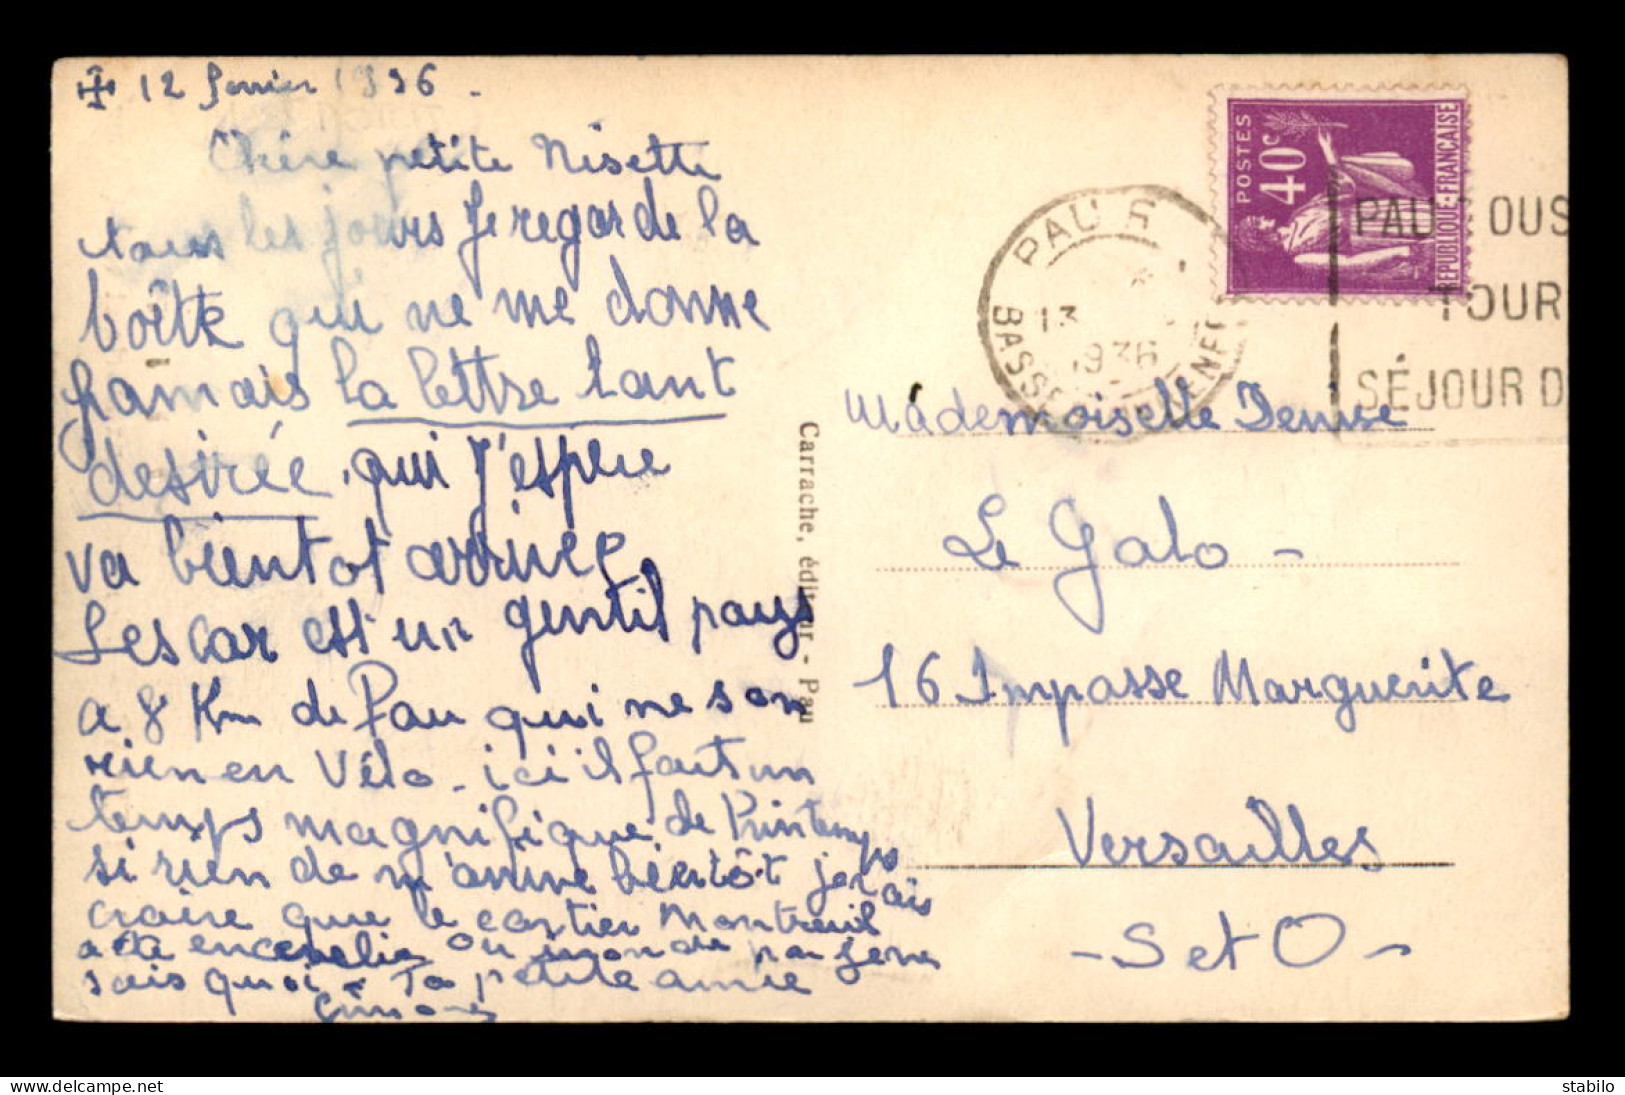 12 1936.
Chère petite Nisette
tous les jours Je regarde la
boîte qui ne me donne
jamais la lettre tant
desirée, qui J'espère
va bientot arrivée
Lescar est un gentil pays
a 8 Km de Pau qui ne son
rien en Vélo - ici il fait un
temps magnifique de Printemps
si rien de m'arrive bientôt je vais
craire que le cartier Montreuil
a été ou par Je ne
sais quoi - Ta petite amie
Carrache, éditeur. - Pau
POSTES
40c
REPUBLIQUE FRANÇAISE
PAU
13
1936
BASSES
PAU
TOUR
SÉJOUR D
Mademoiselle Denise
Le Galo -
16 Impasse Marguerite
Versailles
- S et O -
stabilo